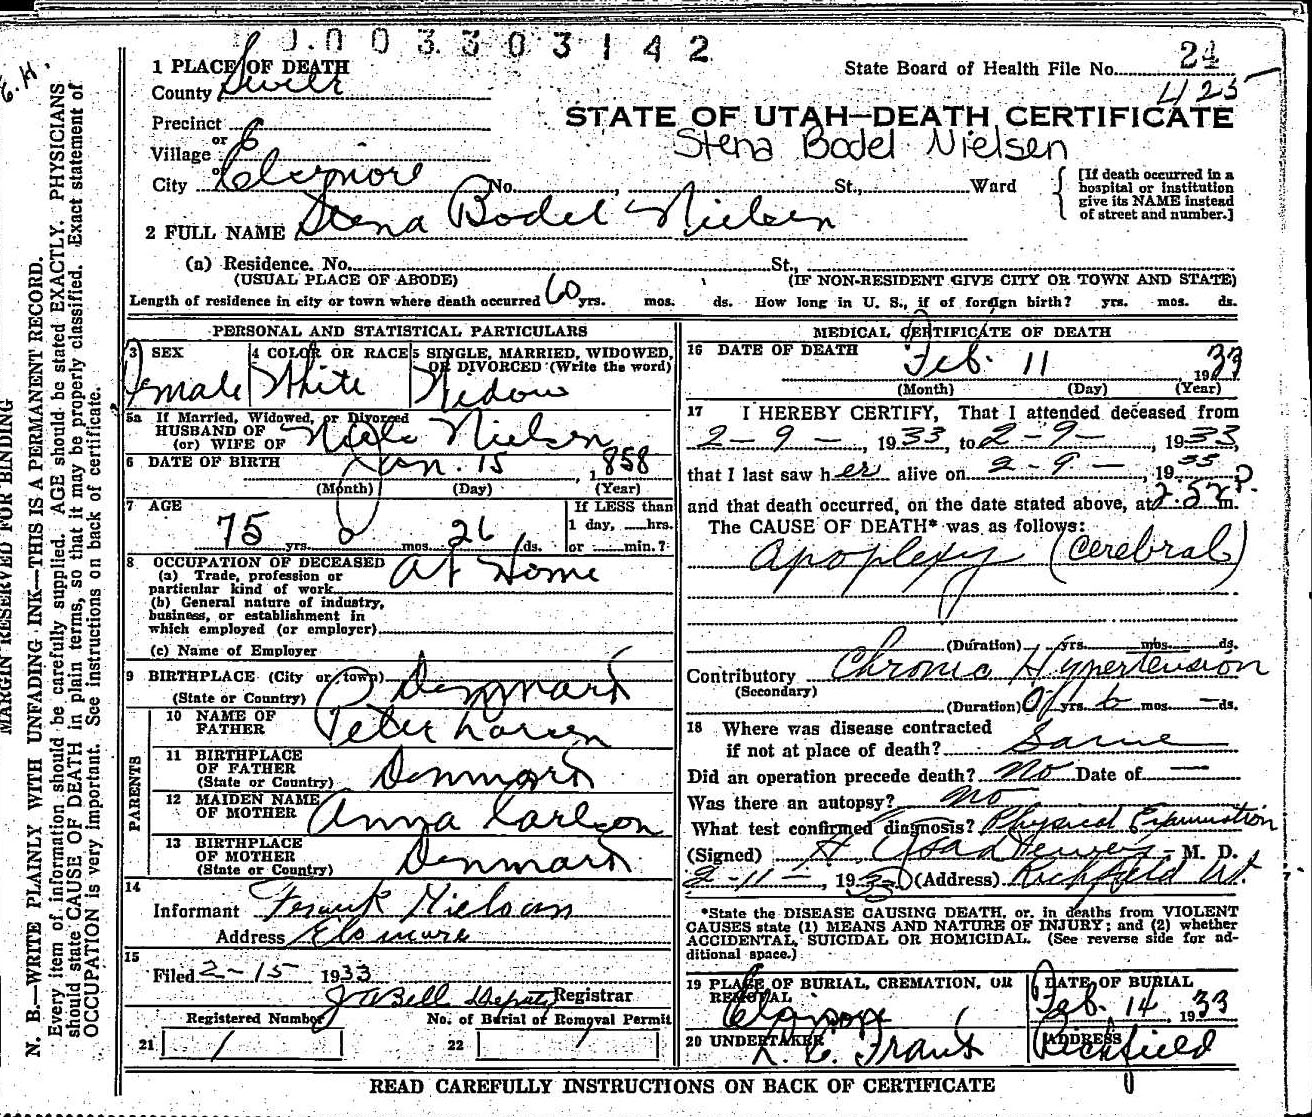 J.003303142
24
State Board of Health File No. 425
1 PLACE OF DEATH
County Sevier
STATE OF UTAH—DEATH CERTIFICATE
Precinct
or
Village
Stena Bodel Nielsen
or
City Elsinore No. , St., Ward
[If death occurred in a hospital or institution give its NAME instead of street and number.]
2 FULL NAME Stena Bodel Nielsen
(a) Residence. No. St.,
(USUAL PLACE OF ABODE) (IF NON-RESIDENT GIVE CITY OR TOWN AND STATE)
Length of residence in city or town where death occurred 60 yrs. mos. ds. How long in U. S., if of foreign birth? yrs. mos. ds.
PERSONAL AND STATISTICAL PARTICULARS
3 SEX 4 COLOR OR RACE 5 SINGLE, MARRIED, WIDOWED, OR DIVORCED (Write the word)
Female White Widow
5a If Married, Widowed, or Divorced
HUSBAND OF
(or) WIFE OF Niels Nielsen
6 DATE OF BIRTH Jan. 15, 1858
(Month) (Day) (Year)
7 AGE If LESS than
75 yrs. 0 mos. 26 ds. 1 day, hrs.
or min.?
8 OCCUPATION OF DECEASED
(a) Trade, profession or
particular kind of work At Home
(b) General nature of industry,
business, or establishment in
which employed (or employer)
(c) Name of Employer
9 BIRTHPLACE (City or town)
(State or Country) Denmark
PARENTS
10 NAME OF
FATHER Peter Larsen
11 BIRTHPLACE
OF FATHER
(State or Country) Denmark
12 MAIDEN NAME
OF MOTHER Anna Carlson
13 BIRTHPLACE
OF MOTHER
(State or Country) Denmark
14
Informant Frank Nielsen
Address Elsinore
15
Filed 2-15 1933
J Bell Deputy Registrar
Registered Number No. of Burial or Removal Permit
21 1 22 1
MEDICAL CERTIFICATE OF DEATH
16 DATE OF DEATH Feb. 11 1933
(Month) (Day) (Year)
17 I HEREBY CERTIFY, That I attended deceased from
2-9-, 1933, to 2-9-, 1933,
that I last saw her alive on 2-9-, 1933
and that death occurred, on the date stated above, at 2:52 P. m.
The CAUSE OF DEATH* was as follows:
Apoplexy (cerebral)
(Duration) yrs. mos. ds.
Contributory Chronic Hypertension
(Secondary)
(Duration) yrs. 6 mos. — ds.
18 Where was disease contracted
if not at place of death? Same
Did an operation precede death? No Date of —
Was there an autopsy? No
What test confirmed diagnosis? Physical Examination
(Signed) M. D.
2-11-, 1933 (Address) Richfield Ut.
*State the DISEASE CAUSING DEATH, or, in deaths from VIOLENT
CAUSES state (1) MEANS AND NATURE OF INJURY; and (2) whether
ACCIDENTAL, SUICIDAL OR HOMICIDAL. (See reverse side for ad-
ditional space.)
19 PLACE OF BURIAL, CREMATION, OR REMOVAL DATE OF BURIAL
Elsinore Feb. 14, 1933
20 UNDERTAKER ADDRESS
Richfield
READ CAREFULLY INSTRUCTIONS ON BACK OF CERTIFICATE
MARGIN RESERVED FOR BINDING
N. B.—WRITE PLAINLY WITH UNFADING INK—THIS IS A PERMANENT RECORD.
Every item of information should be carefully supplied. AGE should be stated EXACTLY. PHYSICIANS
should state CAUSE OF DEATH in plain terms, so that it may be properly classified. Exact statement of
OCCUPATION is very important. See instructions on back of certificate.